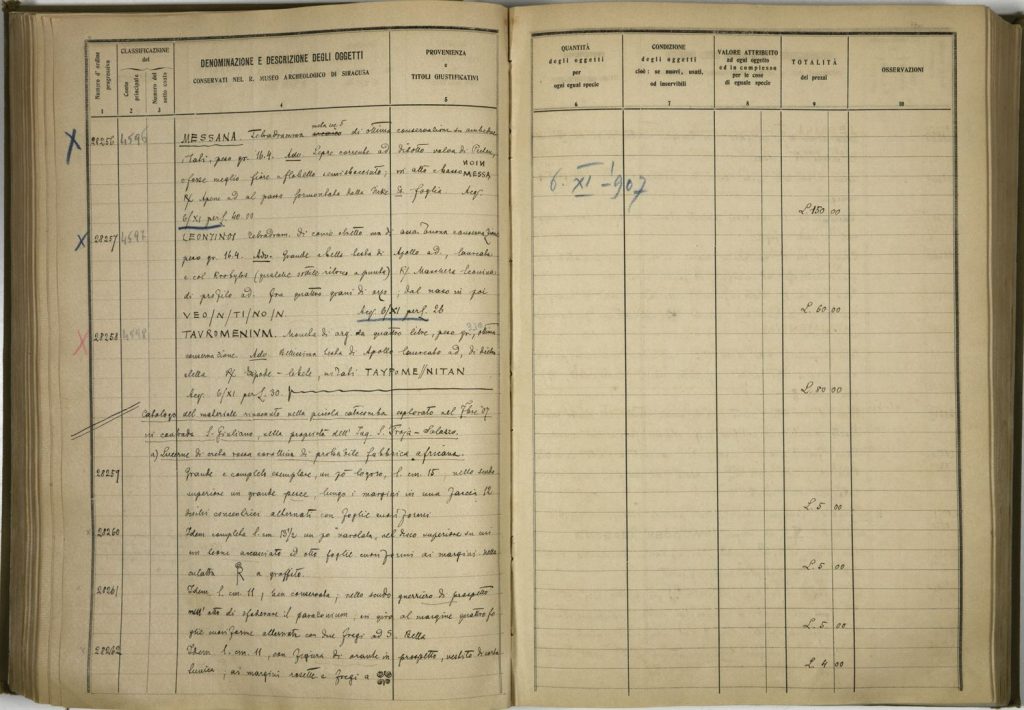 Numero d'ordine progressivo
CLASSIFICAZIONE del
Conto principale
Numero del sotto conto
DENOMINAZIONE E DESCRIZIONE DEGLI OGGETTI
CONSERVATI NEL R. MUSEO ARCHEOLOGICO DI SIRACUSA
PROVENIENZA
e
TITOLI GIUSTIFICATIVI
1 2 3 4 5
28256 4596 MESSANA. Tetradramma di ottima conservazione in ambedue
i lati, peso gr. 16.4. Adv. Lepre corrente ad disotto valva di Pecten,
NOIN
e forse meglio fiore a flabello semisbocciato; in alto e basso MESSA
R/ Apene ad al passo sormontata dalla Nike Ex foglia. Acq.
6/XI per £. 40.00
28257 4597 LEONTINOI tetradram. di conio
peso gr. 16.4. Adv. Grande e bella testa di Apollo ad., laureata
e col Krobylos (qualche sottile ritocco a punta) R/ Maschera leonina
di profilo ad. fra quattro grani di orzo; dal naso in poi
VEO/N/TI/NO/N Acq. 6/XI per £. 26
28258 4598 TAUROMENIUM. Moneta di arg. da quattro litre, peso gr. ottima
conservazione. Adv. Bellissima testa di Apollo laureato ad, di dietro
stella R/ Tripode-lebete, ai lati TAYPOME//NITAN
Acq. 6/XI per £. 30.
Catalogo del materiale rinvenuto nella piccola catacomba esplorata nel 7bre '07
in contrada S. Giuliano, nella proprietà dell'Ing. S. Troja-Salazzo.
a) Lucerne di creta rossa corallina di probabile fabbrica africana.
28259 Grande e completo esemplare, un pò logoro, l. cm. 15, nello scudo
superiore un grande pesce, lungo i margini in una fascia 12
dischi concentrici alternati con foglie cuoriformi
28260 Idem completa l. cm 13½ un pò nel disco superiore su cui
un leone accasciato ed otto foglie cuoriformi ai margini. nella
culatta a graffito.
28261 Idem l. cm. 11, ben conservata; nello scudo guerriero di prospetto
nell'atto di sfoderare il parazonium, in giro al margine quattro fo
glie cuoriforme alternate con due fregi ad S. Bella
28262 Idem l. cm. 11, con figura di orante in prospetto, vestita di corta
tunica; ai margini rosette e fregi a
QUANTITÀ
degli oggetti
per
ogni egual specie
6
CONDIZIONE
degli oggetti
cioè: se nuovi, usati,
od inservibili
7
VALORE ATTRIBUITO
ad ogni oggetto
ed in complesso
per le cose
di eguale specie
8
TOTALITÀ
dei prezzi
9
OSSERVAZIONI
10
6. XI - 907
L. 150 00
L. 60 00
L. 80 00
L. 5 00
L. 5 00
L. 5 00
L. 4 00